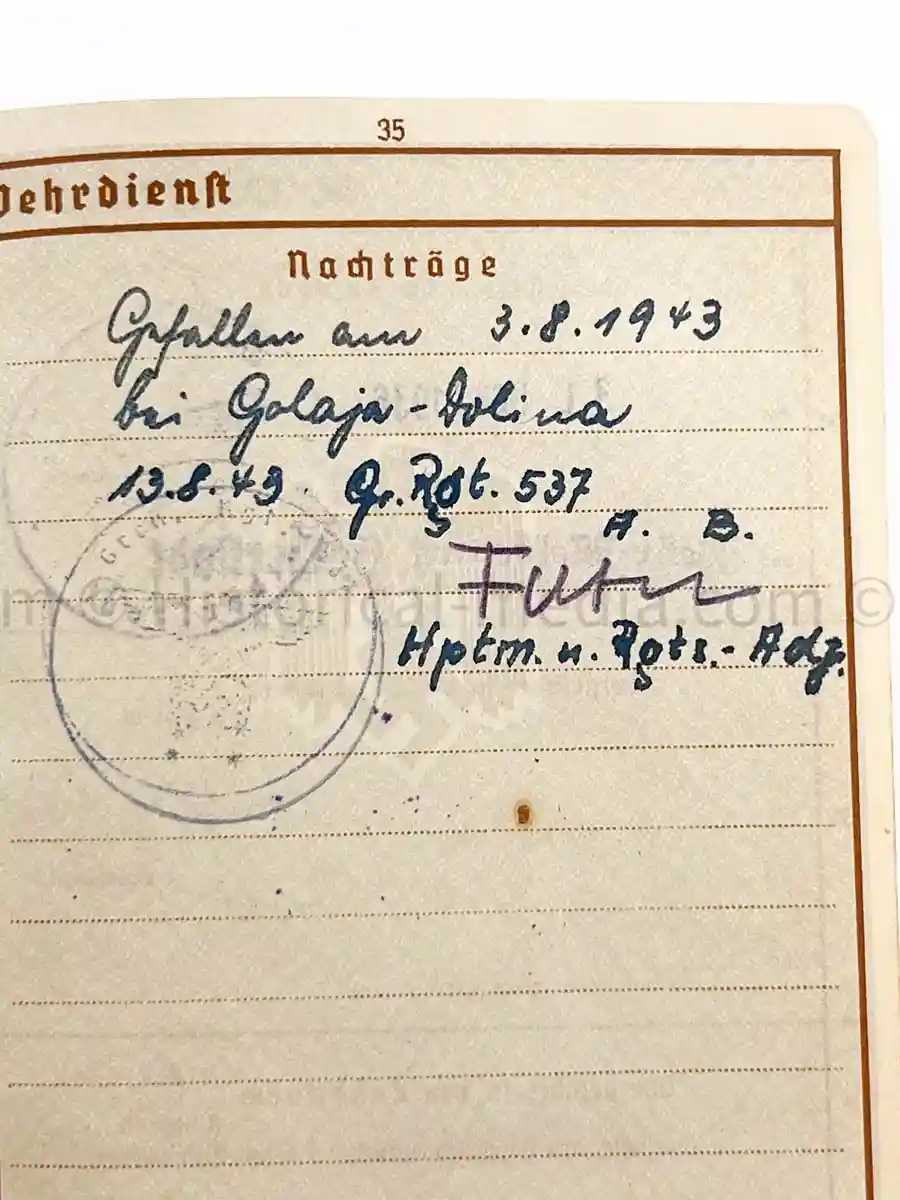 35
Wehrdienst
Nachträge
Gefallen am 3.8.1943
bei Golaja-Dolina
13.8.43 Gr.Rgt. 537
A. B.
Hptm. u. Rgts.-Adj.
Historical-media.com ©